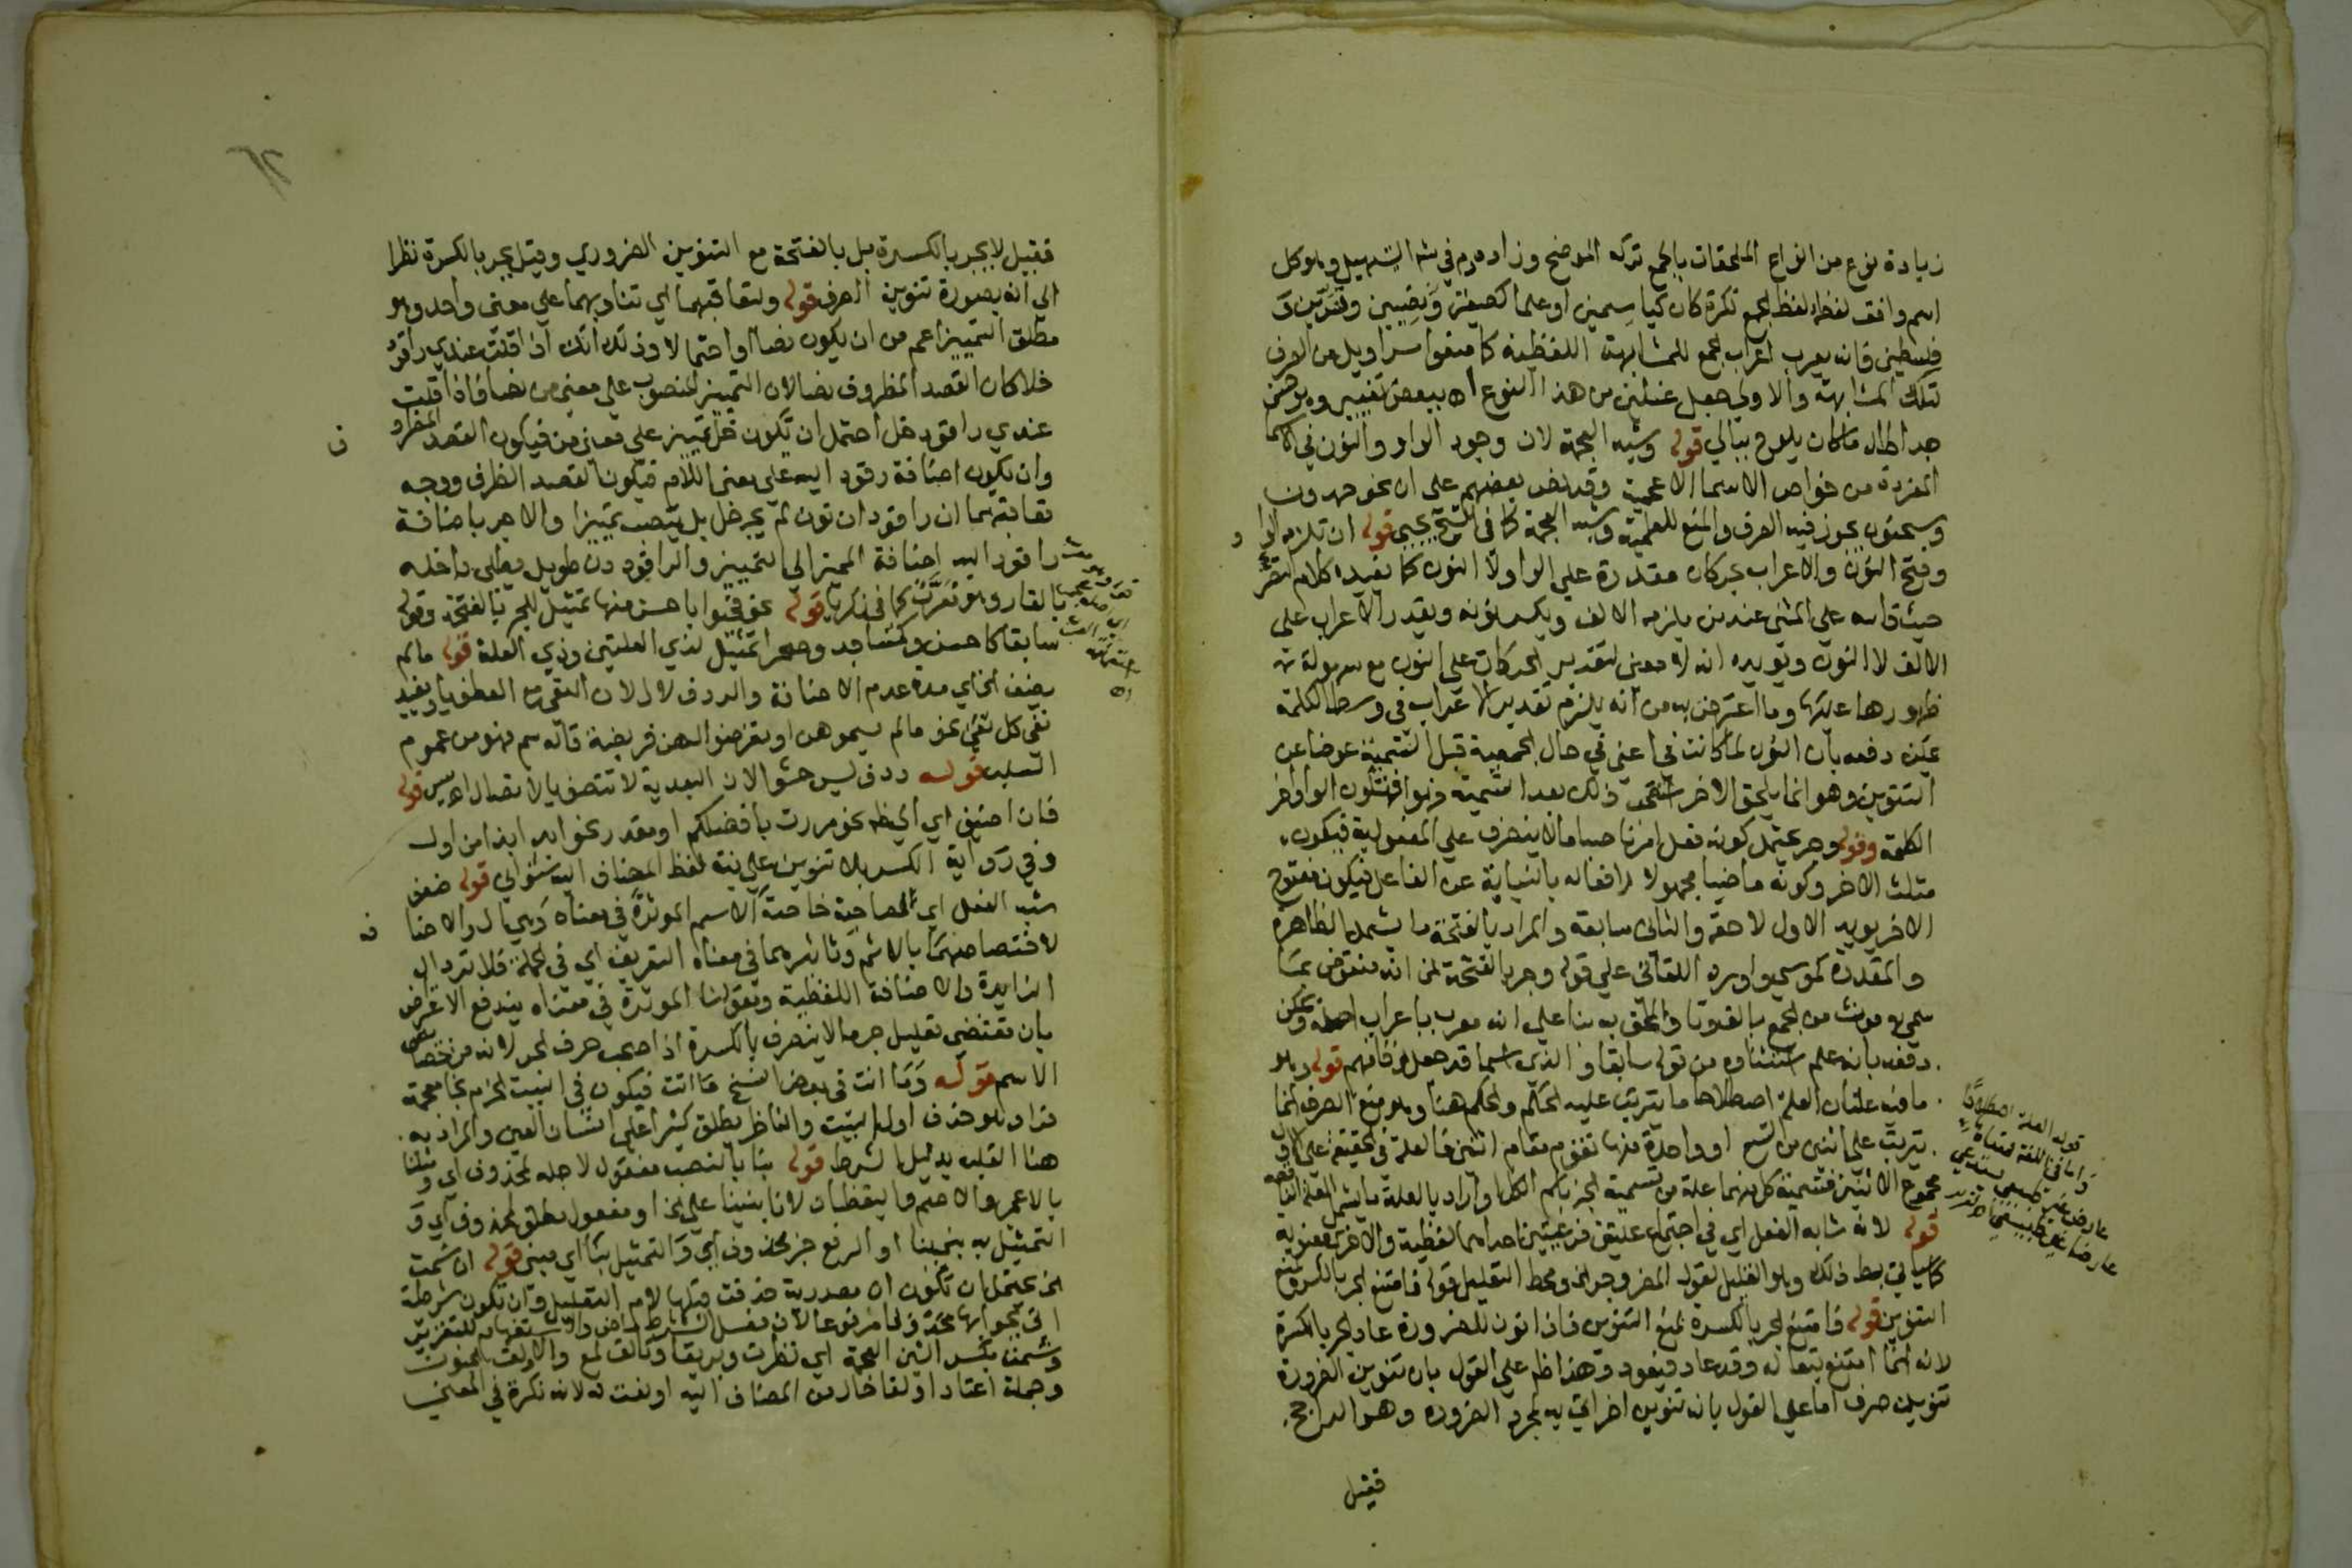 زيادة نوع من انواع الملحقات بالجمع تركه الموضح وزاده م في شرح التسهيل وهو كل
اسم وافق لفظه لفظ الجمع نكرة كان كياسمين او علما كصفين ونصيبين وقنسرين و
فلسطين فانه يعرب اعراب الجمع للمشابهة اللفظية كما منعوا سراويل من الصرف
لتلك المشابهة والاولى جعل غسلين من هذا النوع اه ببعض تغيير
جدا طال ما كان يلوح ببالي قوله وشبه العجمة لان وجود الواو والنون في الاسما
المفردة من خواص الاسما الاعجمية وقد نص بعضهم على ان نحو حمدون
وسحنون يجوز فيه الصرف والمنع للعلمية وشبه العجمة كما في قوله ان تلزمه الواو
وفتح النون والاعراب بحركات مقدرة على الواو لا النون كما يفيده كلام
حيث قاسه على المثنى عند من يلزمه الالف ويكسر نونه ويقدر الاعراب على
الالف لا النون ويؤيده انه لا معنى لتقدير الحركات على النون مع سهولة
ظهورها عليها وما اعترض به من انه يلزم تقدير الاعراب في وسط الكلمة
يمكن دفعه بان النون لما كانت في حال الجمعية قبل التسمية عوضا عن
التنوين وهو انما يلحق الاخر ذلك بعد التسمية فتكون الواو اخر
الكلمة وقوله وجر يحتمل كونه فعل امر ما لا ينصرف على المفعولية فيكون
مثلث الاخر وكونه ماضيا مجهولا رافعا له بالنيابة عن الفاعل فيكون مفتوح
الاخر يؤيد الاول لاحقه والثاني سابقه والمراد بالفتحة ما يشمل الظاهرة
والمقدرة كموسى واورد اللقاني على قوله وجر بالفتحة انه منقوض بما
سمي به مؤنث من الجمع بالف وتا والملحق به بنا على انه معرب باعراب اصله ويمكن
دفعه بانه علم استثناوه من قوله سابقا والذي اسما قد جعل فافهم قوله وهو
ما فيه علتان العلة اصطلاحا ما يترتب عليه الحكم والحكم هنا وهو منع الصرف انما
يترتب على اثنين من تسع او واحدة منها تقوم مقام اثنين فالعلة في الحقيقة على الاول
مجموع الاثنين فتسمية كل منهما علة من تسمية الجزء باسم الكل او اراد بالعلة ما يشمل العلة الناقصة
قوله لانه شابه الفعل اي في اجتماع علتين فرعيتين احداهما لفظية والاخرى معنوية
كما سياتي بسط ذلك وهو تعليل لقوله المصر وجر الخ ومحط التعليل قوله فامتنع الجر بالكسر لمنع
التنوين قوله فامتنع الجر بالكسرة لمنع التنوين فاذا نون للضرورة عاد الجر بالكسرة
لانه انما امتنع تبعا له وقد عاد فيعود وهذا ظاهر على القول بان تنوين الضرورة
تنوين صرف اما على القول بانه تنوين اخر اتي به لمجرد الضرورة وهو الراجح
فقيل
قوله العلة اصطلاحا
واما في اللغة فمعناها
عارض غير طبيعي يستدعي
عارضا غير طبيعي
٦٢
فقيل لا يجر بالكسرة بل بالفتحة مع التنوين الضروري وقيل يجر بالكسرة نظرا
الى انه بصورة تنوين الصرف قوله ولتعاقبهما اي تناوبهما على معنى واحد وهو
مطلق التمييز اعم من ان يكون نصا او احتمالا وذلك انك اذا قلت عندي راقود
خلا كان القصد المظروف نصا لان التمييز المنصوب على معنى من نصا فاذا قلت
عندي راقود خل احتمل ان تكون خل تمييز على معنى من فيكون القصد المظروف
وان يكون اضافة راقود اليه على معنى اللام فيكون القصد الظرف ووجه
تعاقبهما ان راقود ان نون لم يجر خل بل ينصب تمييزا والا جر باضافة
راقود اليه اضافة المميز الى التمييز والراقود دن طويل يطلى داخله
بالقار وهو معرب كما في زكريا قوله نحو فحيوا باحسن منها تمثيل للجر بالفتحة وقوله
سابقا كاحسن وكمساجد وصحرا تمثيل لذي العلتين وذي العلة قوله ما لم
يضف الخ اي مدة عدم الاضافة والردف لال لان النفي مع العطف باو يفيد
نفي كل نفي نحو ما لم تمسوهن او تفرضوا لهن فريضة قاله سم فهو من عموم
السلب قوله ردف ليس حشوا لان البعدية لا تقتضي الاتصال قوله
فان اضيف اي الخ نحو مررت بافضلكم او مقدر نحو ابدا بذا من اول
وفي رواية الكسر بلا تنوين على نية لفظ المضاف اليه شنواني قوله ضعف
شبه الفعل اي لمصاحبة خاصة الاسم المؤثرة في معناه وهي ال والاضافة
لاختصاصهما بالاسم وتاثيرهما في معناه التعريف اي في الجملة فلا ترد ال
الزايدة والاضافة اللفظية وبقولنا المؤثرة في معناه يندفع الاعتراض
بان مقتضى تعليل جر ما لا ينصرف بالكسرة اذا صحب حرف الجر لانه من خصائص
الاسم قوله وما انت في بعض النسخ ما انت فيكون في البيت الخرم بخا معجمة
فراء وهو حذف اول البيت والناظر يطلق كثيرا على انسان العين والمراد به
هنا القلب بدليل الشرط قوله بنا بالنصب مفعول لاجله لمحذوف اي ومثلنا
بالاعمى والاصم واليقظان لانا بنينا على كذا او مفعول مطلق لمحذوف اي و
التمثيل به بنينا او الرفع خبر محذوف اي والتمثيل بنا اي مبني قوله ان شمت
الخ يحتمل ان تكون ان مصدرية حذفت قبلها لام التعليل وان تكون شرطية
وشمت بكسر الشين المعجمة اي نظرت وبريقا وتالق لمع والاولق الجنون
وجملة اعتاد اولقا حال من المضاف اليه او نعت له لانه نكرة في المعنى